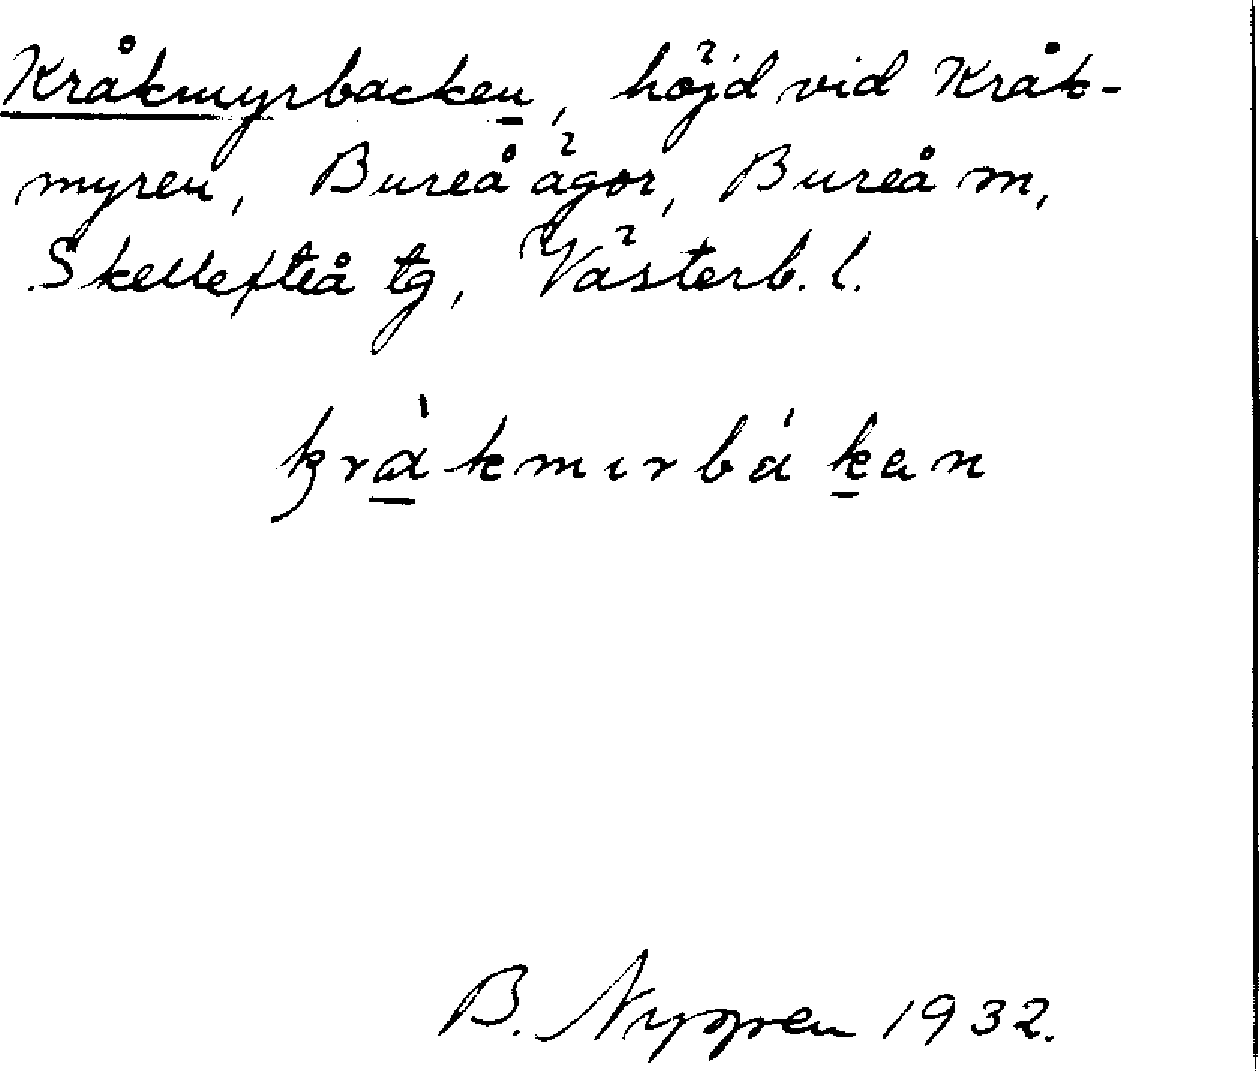 Kråkmyrbacken, höjd vid Kråk-
myren, Bureå ägor, Bureå m,
Skellefteå tg, Västerb. l.
kråkmırbákan
B. Nygren 1932.